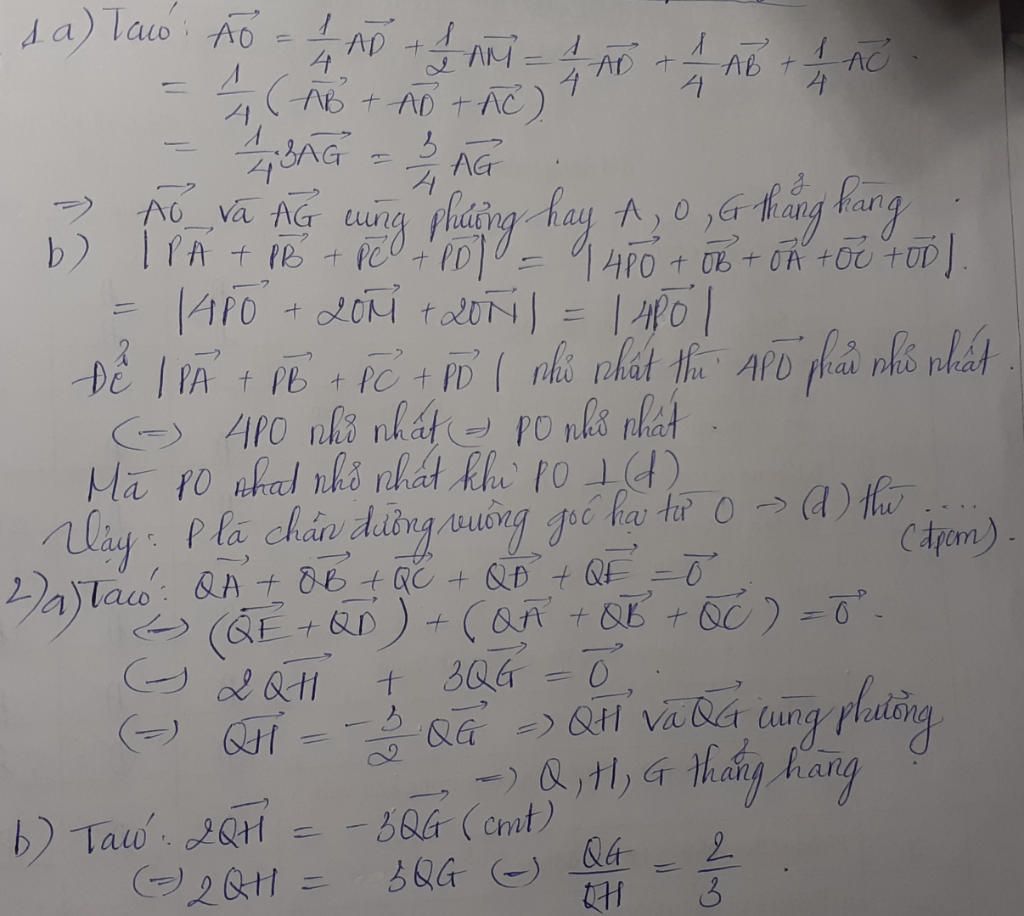 1a) Ta có: \overrightarrow{AO} = \frac{1}{4}\overrightarrow{AD} + \frac{1}{2}\overrightarrow{AM} = \frac{1}{4}\overrightarrow{AD} + \frac{1}{4}\overrightarrow{AB} + \frac{1}{4}\overrightarrow{AC}.
= \frac{1}{4}(\overrightarrow{AB} + \overrightarrow{AD} + \overrightarrow{AC})
= \frac{1}{4}.3\overrightarrow{AG} = \frac{3}{4}\overrightarrow{AG}.
=> \overrightarrow{AO} và \overrightarrow{AG} cùng phương hay A, O, G thẳng hàng.
b) |\overrightarrow{PA} + \overrightarrow{PB} + \overrightarrow{PC} + \overrightarrow{PD}| = |4\overrightarrow{PO} + \overrightarrow{OB} + \overrightarrow{OA} + \overrightarrow{OC} + \overrightarrow{OD}|.
= |4\overrightarrow{PO} + 2\overrightarrow{OM} + 2\overrightarrow{ON}| = |4\overrightarrow{PO}|
Để |\overrightarrow{PA} + \overrightarrow{PB} + \overrightarrow{PC} + \overrightarrow{PD}| nhỏ nhất thì 4\overrightarrow{PO} phải nhỏ nhất.
(=) 4PO nhỏ nhất (=) PO nhỏ nhất.
Mà PO nhỏ nhất khi PO ⊥ (d)
Vậy: P là chân đường vuông góc hạ từ O → (d) thì ....
(đpcm).
2)a) Ta có: \overrightarrow{QA} + \overrightarrow{QB} + \overrightarrow{QC} + \overrightarrow{QD} + \overrightarrow{QE} = \overrightarrow{0}
(=) (\overrightarrow{QE} + \overrightarrow{QD}) + (\overrightarrow{QA} + \overrightarrow{QB} + \overrightarrow{QC}) = \overrightarrow{0}.
(=) 2\overrightarrow{QH} + 3\overrightarrow{QG} = \overrightarrow{0}.
(=) \overrightarrow{QH} = -\frac{3}{2}\overrightarrow{QG} => \overrightarrow{QH} và \overrightarrow{QG} cùng phương
=> Q, H, G thẳng hàng
b) Ta có: 2\overrightarrow{QH} = -3\overrightarrow{QG} (cmt)
(=) 2QH = 3QG (=) \frac{QG}{QH} = \frac{2}{3}.